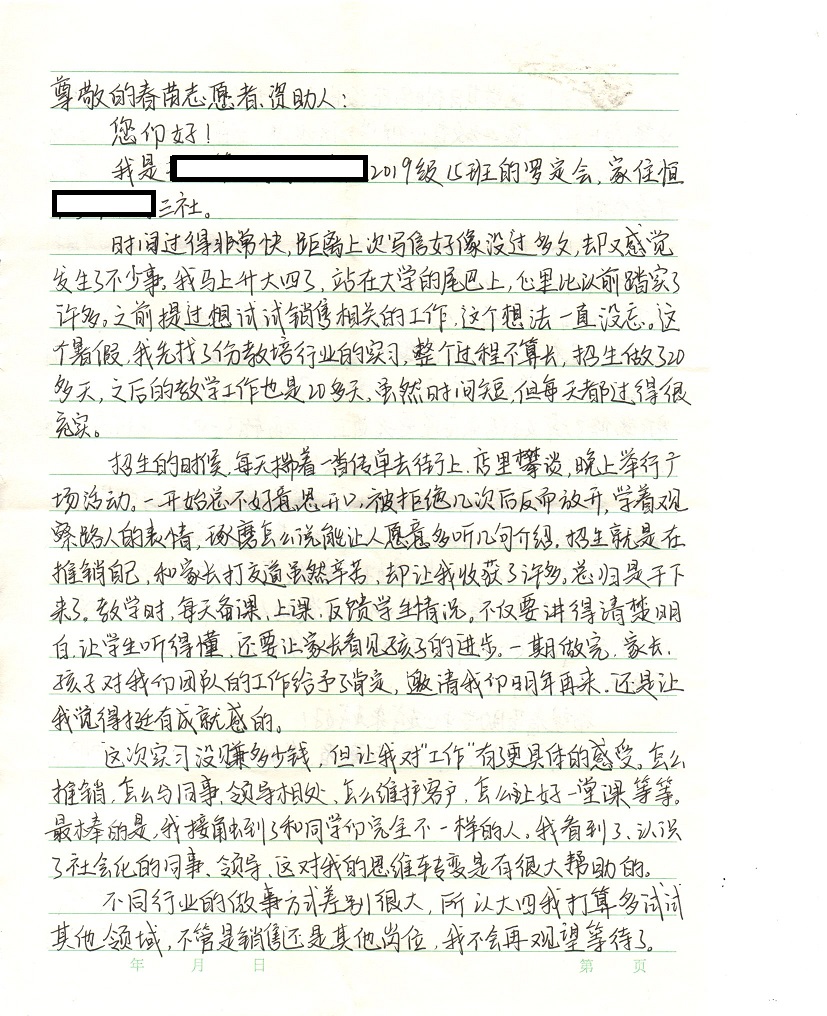 尊敬的春苗志愿者、资助人：
您们好！
我是 2019级15班的罗定会，家住恒
三社。
时间过得非常快，距离上次写信好像没过多久，却又感觉
发生了不少事。我马上升大四了，站在大学的尾巴上，心里比以前踏实了
许多。之前提过想试试销售相关的工作，这个想法一直没忘。这
个暑假，我先找了份教培行业的实习，整个过程不算长，招生做了20
多天，之后的教学工作也是20多天。虽然时间短，但每天都过得很
充实。
招生的时候，每天揣着一沓传单去街上、店里攀谈，晚上举行广
场活动。一开始总不好意思开口，被拒绝几次后反而放开，学着观
察路人的表情，琢磨怎么说能让人愿意多听几句介绍。招生就是在
推销自己，和家长打交道虽然辛苦，却让我收获了许多。总归是干下
来了。教学时，每天备课、上课、反馈学生情况。不仅要讲得清楚明
白，让学生听得懂，还要让家长看见孩子的进步。一期做完，家长、
孩子对我们团队的工作给予了肯定，邀请我们明年再来，还是让
我觉得挺有成就感的。
这次实习没赚多少钱，但让我对"工作"有了更具体的感受。怎么
推销，怎么与同事、领导相处、怎么维护客户，怎么让好一堂课等等。
最棒的是，我接触到了和同学们完全不一样的人。我看到了、认识
了社会化的同事、领导、这对我的思维转变是有很大帮助的。
不同行业的做事方式差别很大，所以大四我打算多试试
其他领域，不管是销售还是其他岗位，我不会再观望等待了。
年 月 日 第 页